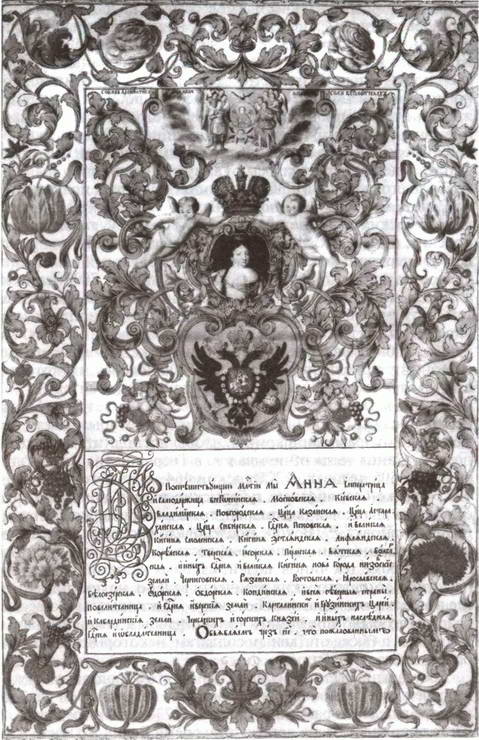 Поспѣшествующею млⷭ҇тїю Мы Анна Імператрица
и самодержица всеросїйская. Московская. Кіевская.
Владимїрская. Новгородская. Цр҃ца Казанская. Цр҃ца Астра
ханская. Цр҃ца Сибирская. Гдⷭ҇рня Псковская. и великая
Княгиня Смоленская. Княгиня Эстляндская. Лифляндская.
Корѣльская. Тверская. Югорская. Пермская. Вятская. Болгар
ская. и иныхъ Гдⷭ҇рня и великая Княгиня Нова города низовскїе
земли. Чернїговская. Рязанская. Ростовская. Ярославская.
Бѣлоозерская. Удорская. Обдорская. Кондийская. и всея сѣверныя страны
повелителница. и Гдⷭ҇рня иверскїя земли. Карталинскихъ и Грузинскихъ Царей.
и Кабардинскїя земли. Черкаскихъ и горскихъ Князей. и иныхъ наслѣдная
Гдⷭ҇рня и обладателница. Объявляемъ чрезъ сїе, что